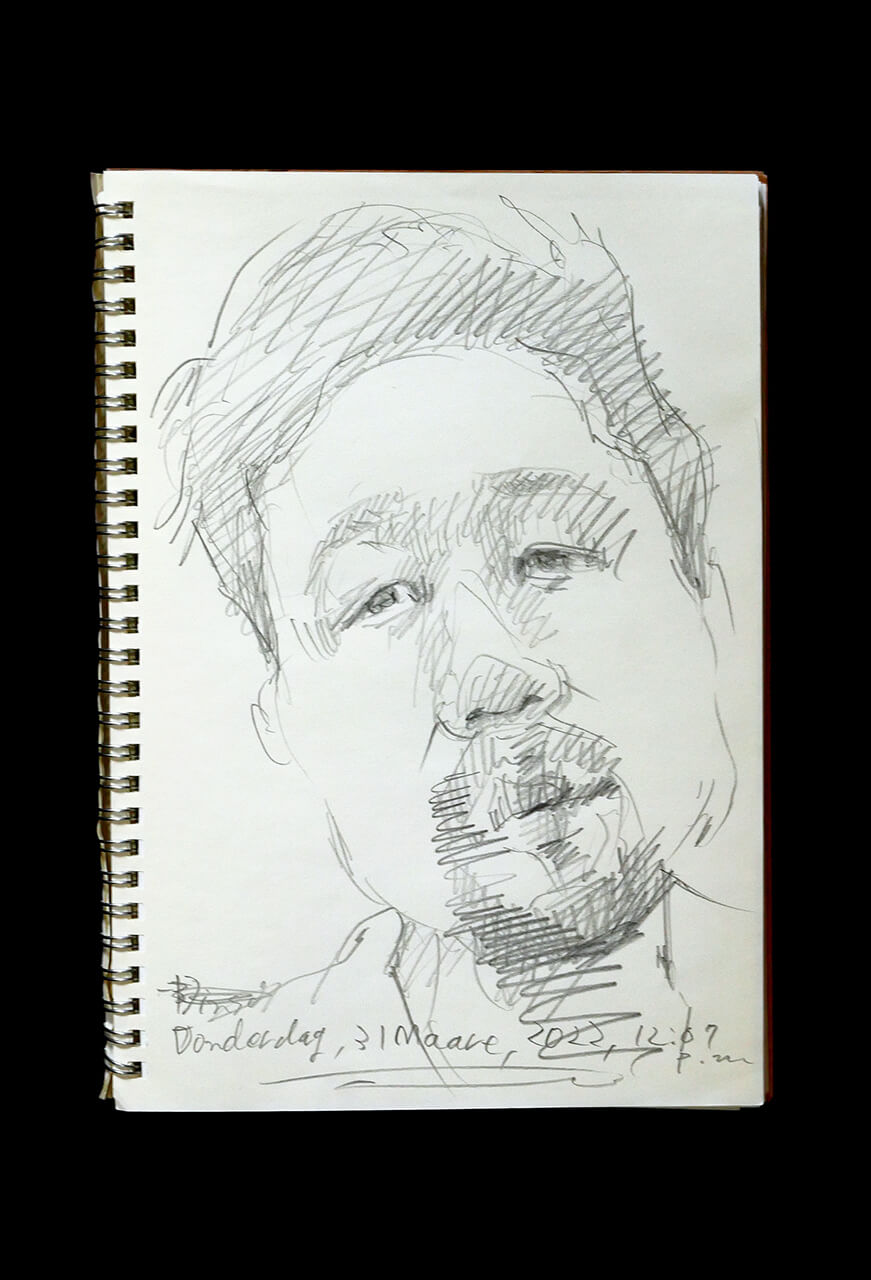 Donderdag, 31 Maare, 2022, 12:07
p.m